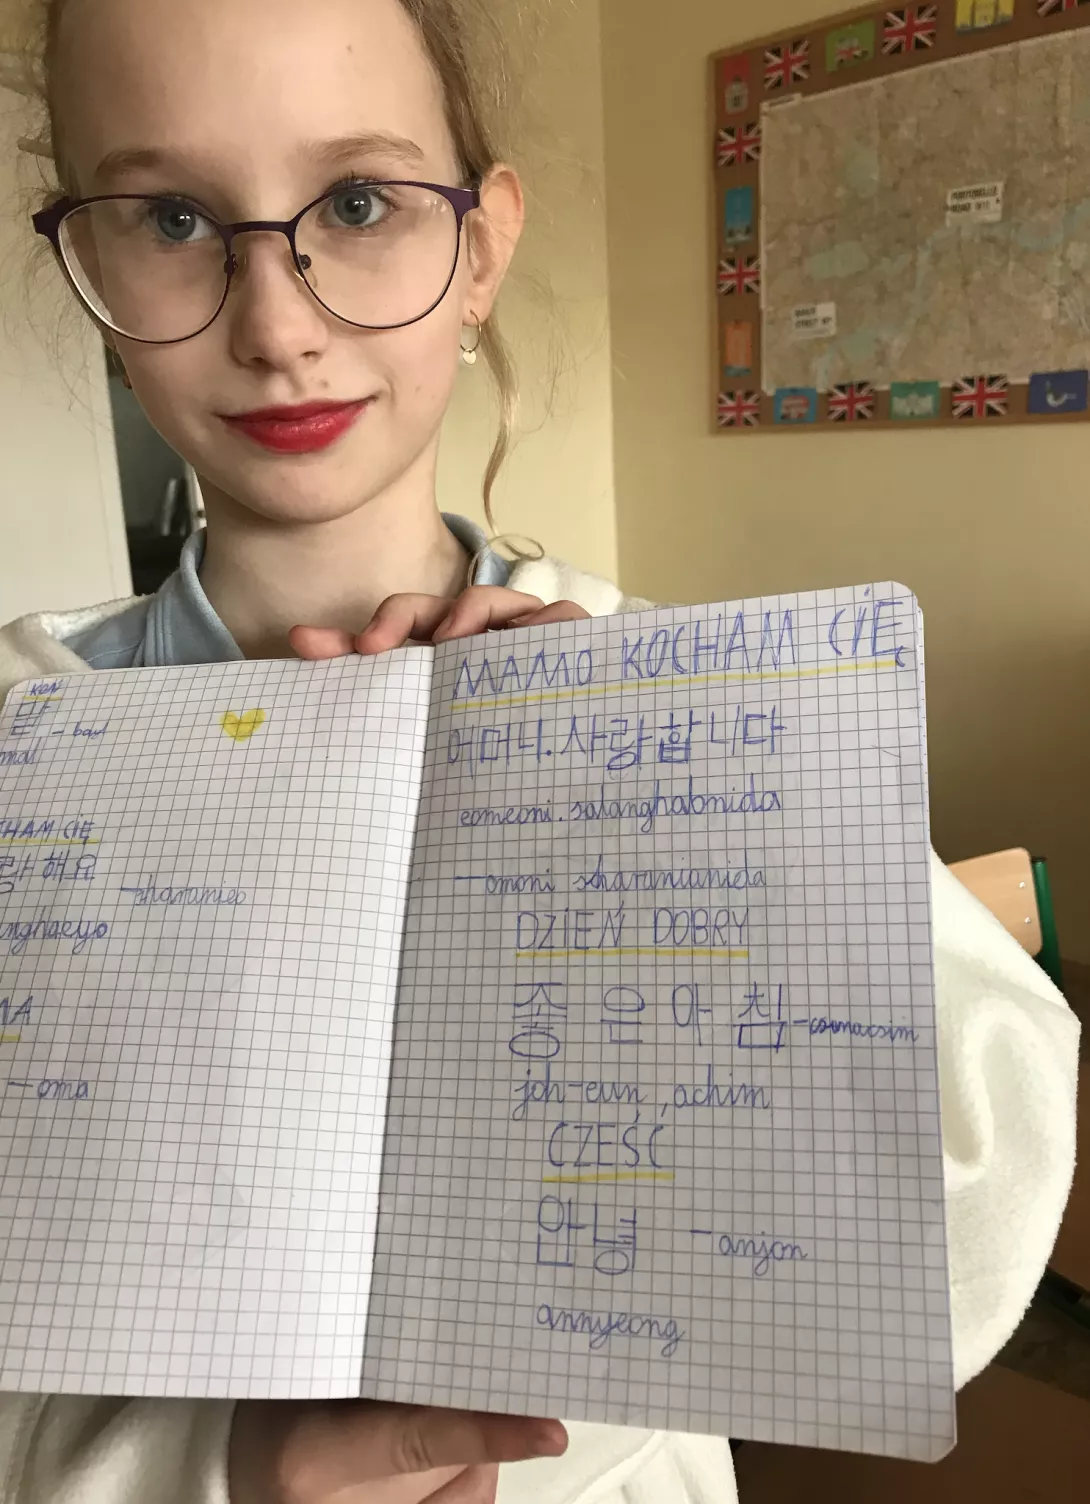 koń
말 - baul
mal
CHAM CIĘ
랑 해 요
- sharanieo
nghaeyo
MA
- oma
MAMO KOCHAM CIĘ
어머니. 사랑합니다
eomeoni. salanghabnida
- omoni scharanianida
DZIEŃ DOBRY
좋 은 아 침 - coünacsim
joh-eun, achim
CZEŚĆ
안녕 - anjon
annyeong
PORTOBELLO
ROAD W11
BAKER
STREET W1